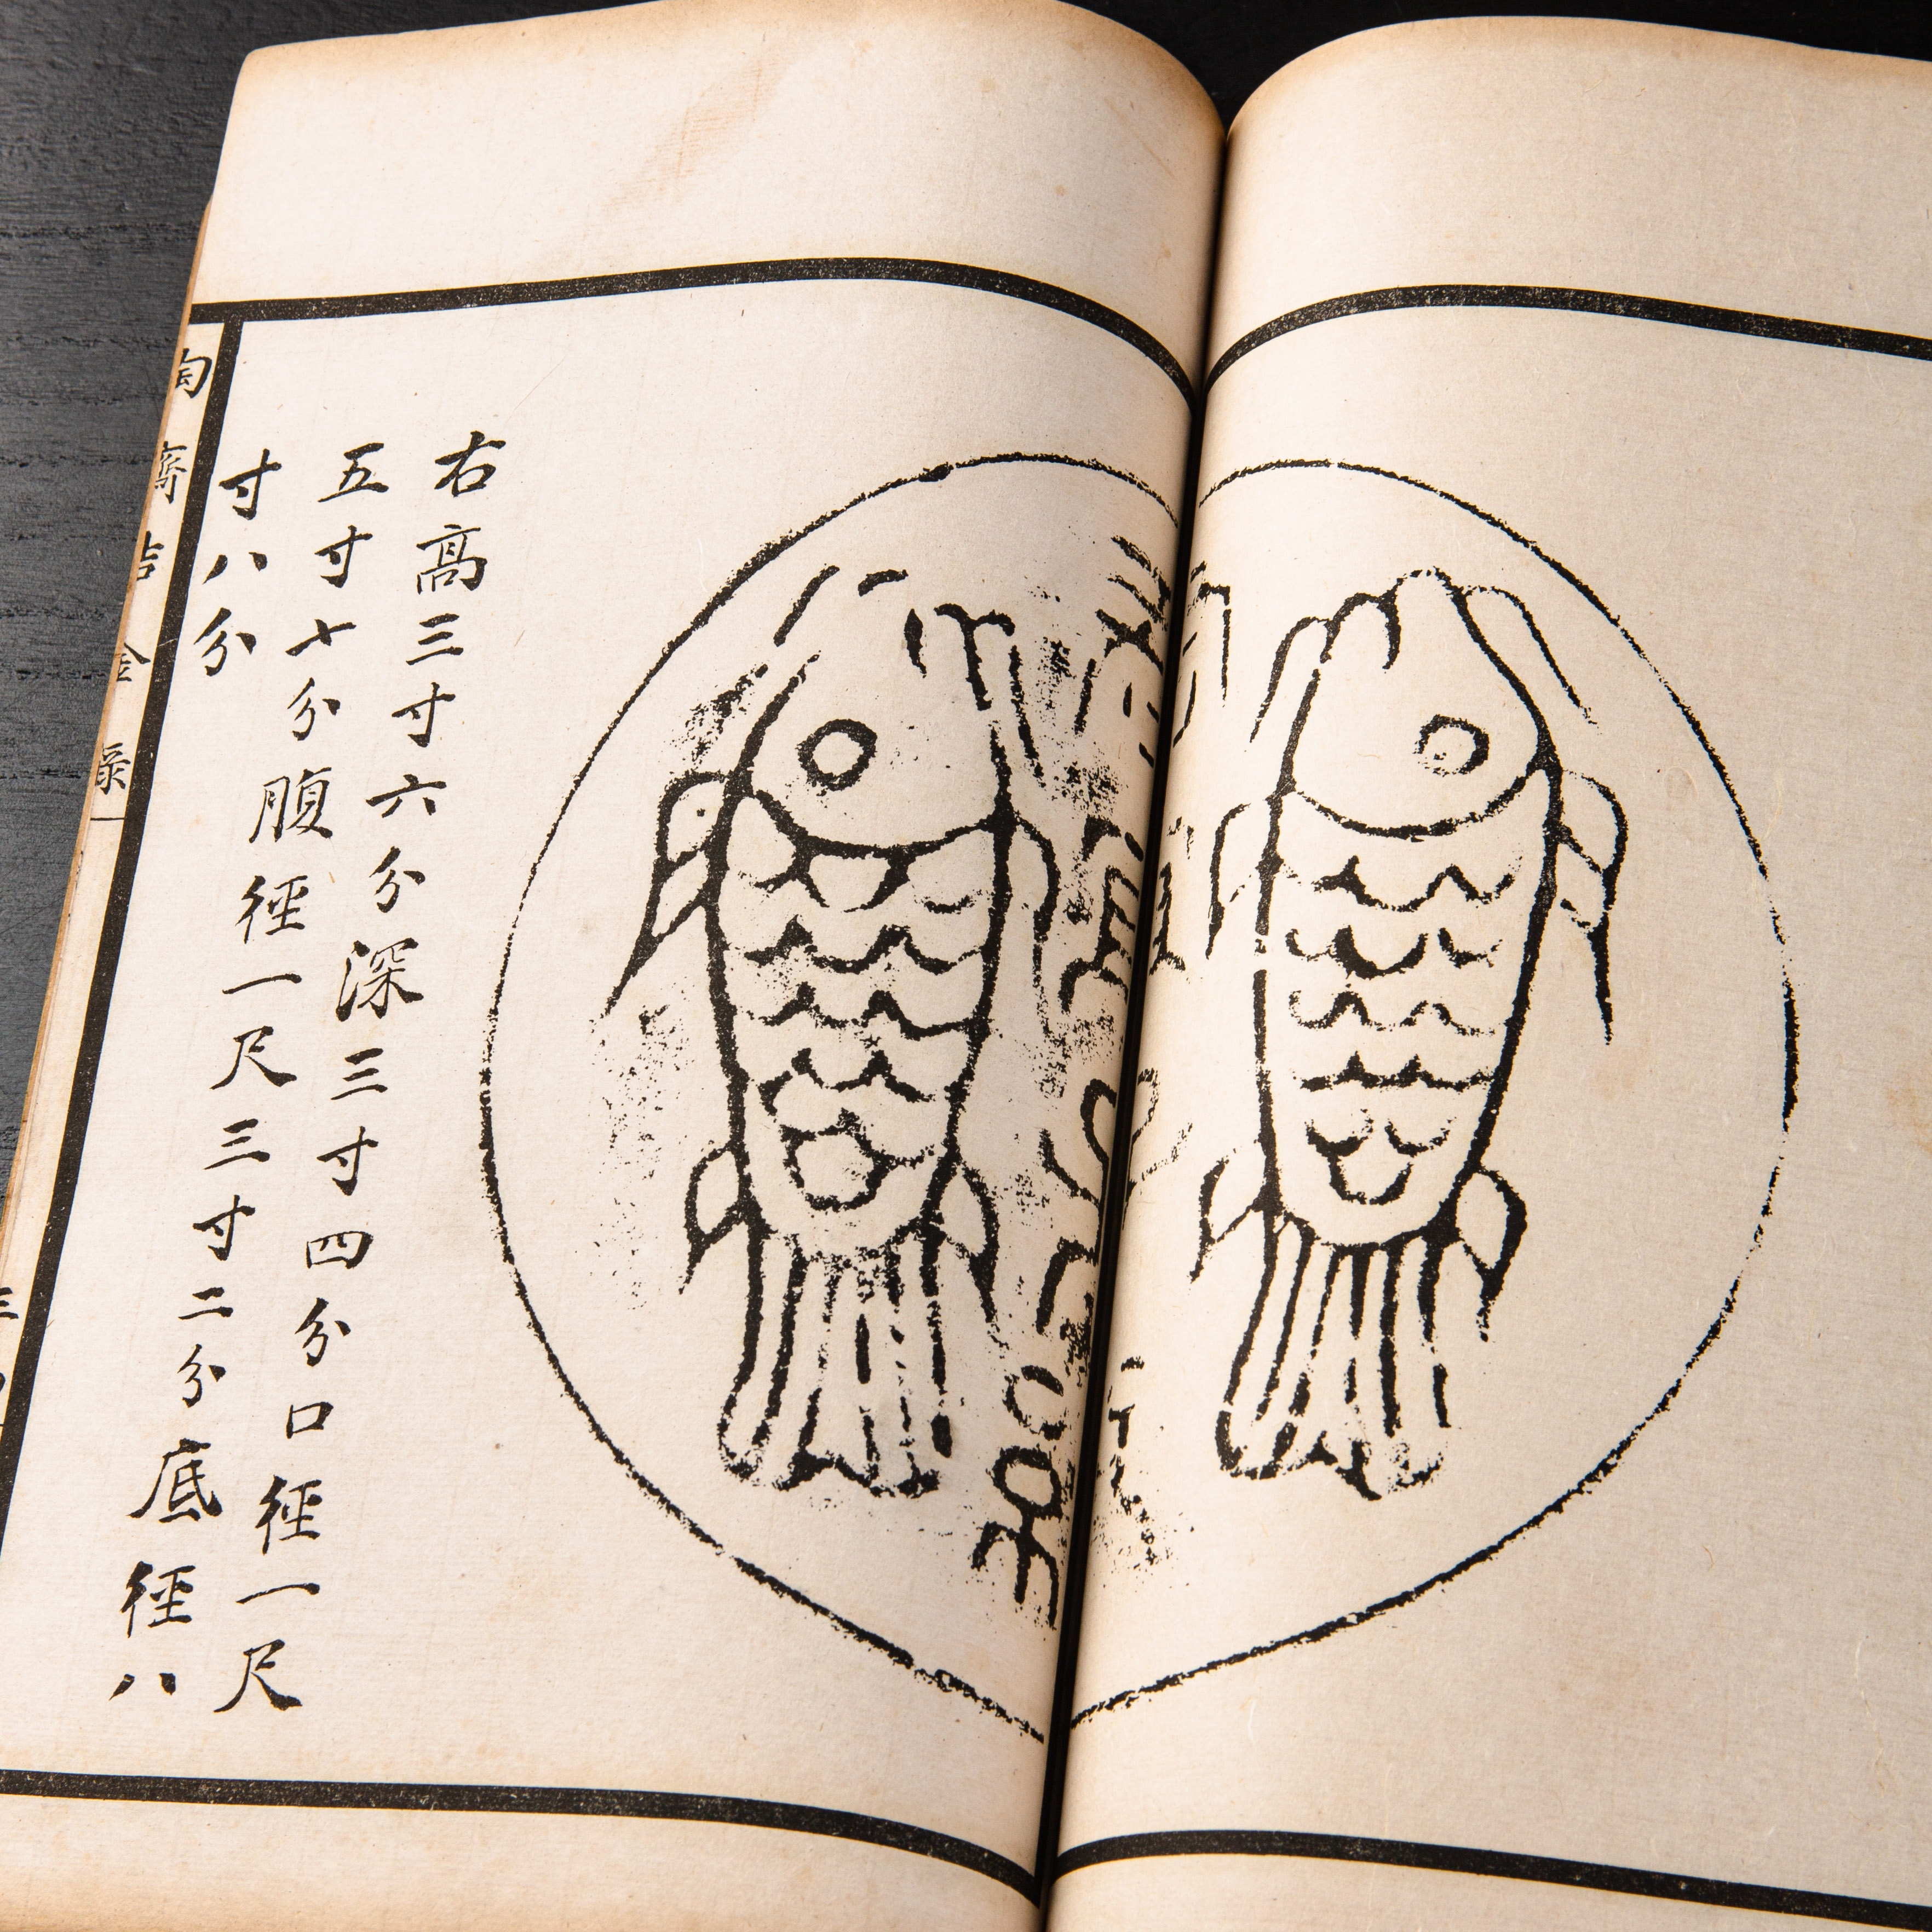 右高三寸六分深三寸四分口徑一尺
五寸七分腹徑一尺三寸二分底徑八
寸八分
陶齋吉金錄